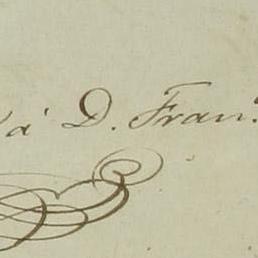 á D. Fran.